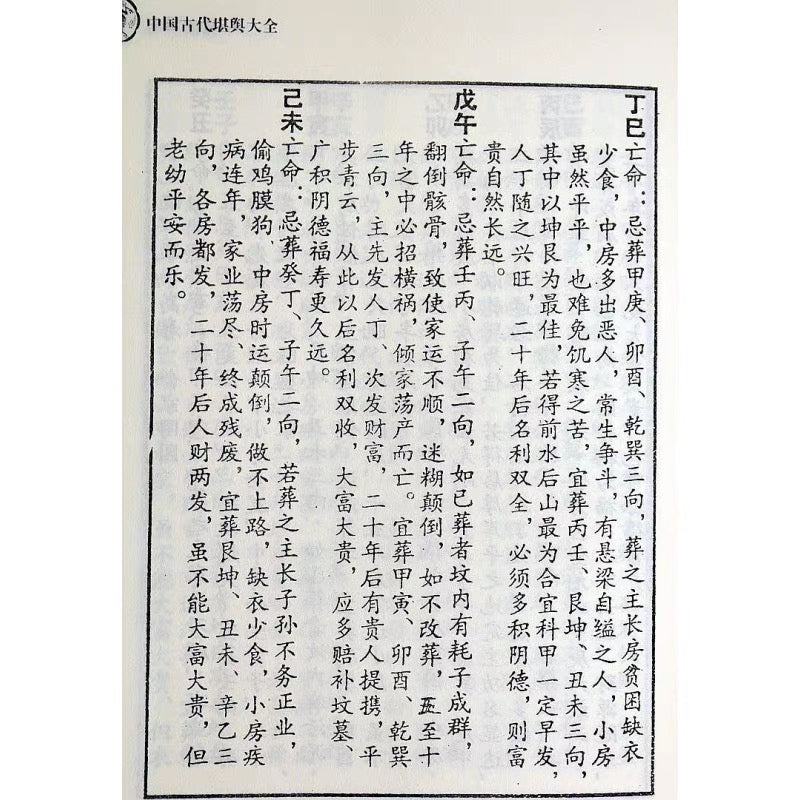 中国古代堪舆大全
丁巳亡命：忌葬甲庚、卯酉、乾巽三向，葬之主长房贫困缺衣
少食，中房多出恶人，常生争斗，有悬梁自缢之人，小房
虽然平平，也难免饥寒之苦，宜葬丙壬、艮坤、丑未三向，
其中以坤艮为最佳，若得前水后山最为合宜科甲一定早发，
人丁随之兴旺，二十年后名利双全，必须多积阴德，则富
贵自然长远。
戊午亡命：忌葬壬丙、子午二向，如已葬者坟内有耗子成群，
翻倒骸骨，致使家运不顺，迷糊颠倒，如不改葬，五至十
年之中必招横祸，倾家荡产而亡。宜葬甲寅、卯酉、乾巽
三向，主先发人丁、次发财富，二十年后有贵人提携，平
步青云，从此以后名利双收，大富大贵，应多赔补坟墓、
广积阴德福寿更久远。
己未亡命：忌葬癸丁、子午二向，若葬之主长子孙不务正业，
偷鸡膜狗、中房时运颠倒，做不上路，缺衣少食，小房疾
病连年，家业荡尽、终成残废，宜葬艮坤、丑未、辛乙三
向，各房都发，二十年后人财两发，虽不能大富大贵，但
老幼平安而乐。